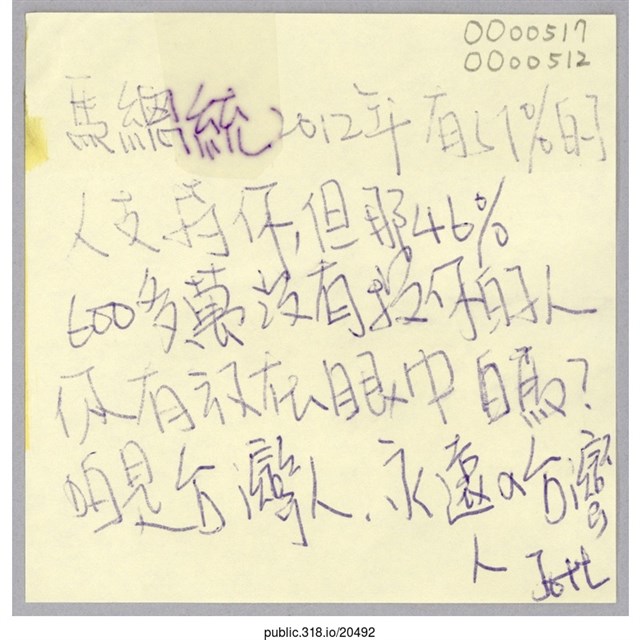 0000517
0000512
馬總統2012年有51%的
人支持你,但那46%
600多萬沒有投你的人
你有放在眼中的嗎?
咱是台灣人.永遠a台灣
人
public.318.io/20492